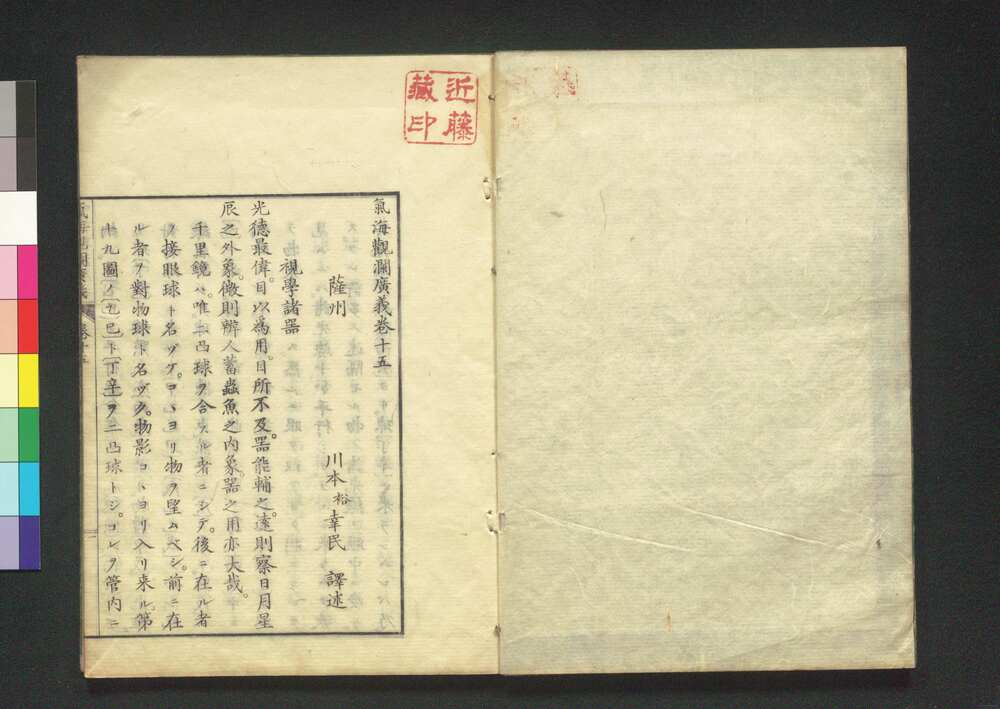 近藤
藏印
氣海觀瀾廣義卷十五
薩州 川本裕幸民 譯述
視學諸器
光德最偉。目以為用。目所不及。器能輔之。遠則察日月星
辰之外象。微則辨人蓄蟲魚之内象。器之用亦大哉。
千里鏡ハ。唯二凸球ヲ合スル者ニシテ。後ニ在ル者
ヲ接眼球ト名ヅケ。コヽヨリ物ヲ望ムベシ。前ニ在
ル者ヲ對物球ト名ヅク。物影コヽヨリ入リ来ル。第
十九圖ノ
ヲ二凸球トシ。コレヲ管内ニ